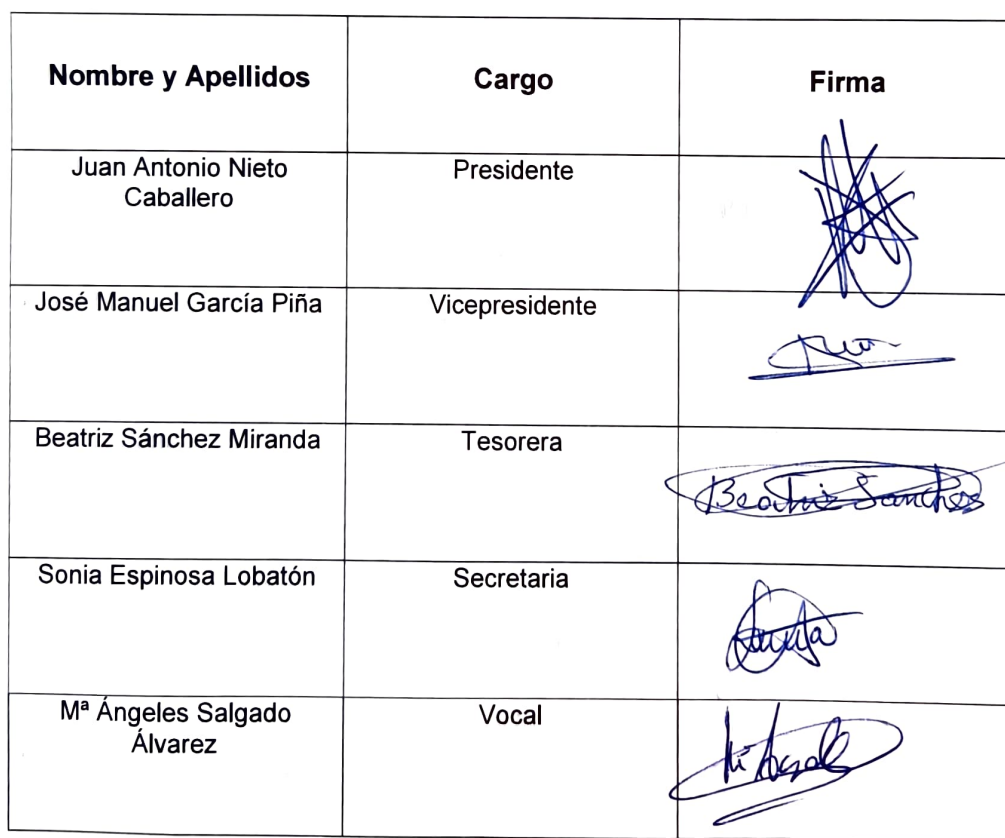 Nombre y Apellidos Cargo Firma
Juan Antonio Nieto Presidente
Caballero
José Manuel García Piña Vicepresidente
Beatriz Sánchez Miranda Tesorera
Beatriz Sanches
Sonia Espinosa Lobatón Secretaria
Mª Ángeles Salgado Vocal
Álvarez